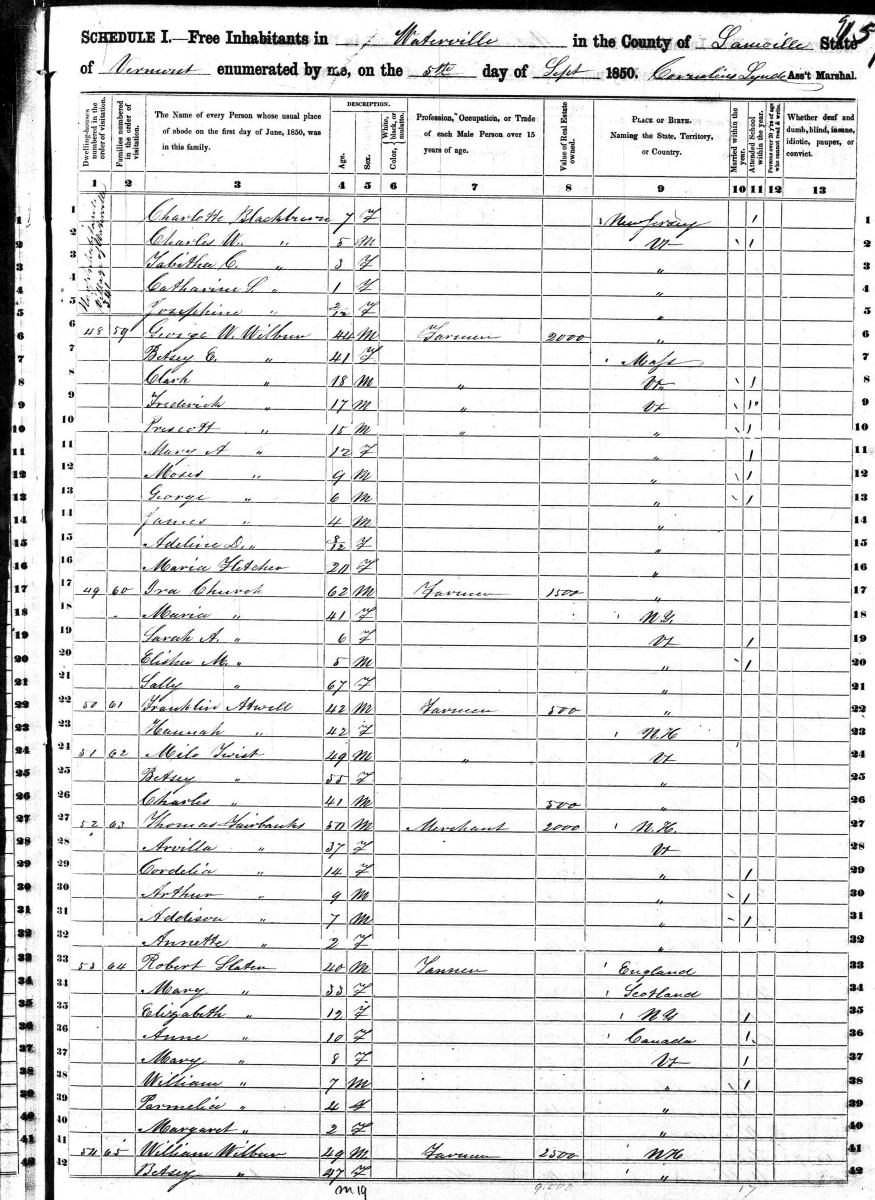 915
SCHEDULE I.—Free Inhabitants in Waterville in the County of Lamoille State
of Vermont enumerated by me, on the 5th day of Sept 1850. Cornelius Lynde Ass't Marshal.
Dwelling-houses numbered in the order of visitation.
Families numbered in the order of visitation.
The Name of every Person whose usual place of abode on the first day of June, 1850, was in this family.
DESCRIPTION.
Age.
Sex.
Color, White, black, or mulatto.
Profession, Occupation, or Trade of each Male Person over 15 years of age.
Value of Real Estate owned.
PLACE OF BIRTH. Naming the State, Territory, or Country.
Married within the year.
Attended School within the year.
Persons over 20 y'rs of age who cannot read & write.
Whether deaf and dumb, blind, insane, idiotic, pauper, or convict.
1 2 3 4 5 6 7 8 9 10 11 12 13
1 Charlotte Blackburn 7 F New Jersey / 1
2 Charles W. " 5 M Vt / 2
3 Tabitha C. " 3 F " 3
4 Catharine S. " 1 F " 4
5 Josephine " 2/12 F " 5
6 48 59 George W. Wilbur 44 M Farmer 2000 " 6
7 Betsey E. " 41 F Mass 7
8 Clark " 18 M " Vt / 8
9 Frederick " 17 M " Vt / 9
10 Prescott " 15 M " " / 10
11 Mary A " 12 F " / 11
12 Moses " 9 M " / 12
13 George " 6 M " / 13
14 James " 4 M " 14
15 Adeline D. " 8/12 F " 15
16 Maria Fletcher 20 F " 16
17 49 60 Ira Church 62 M Farmer 1500 " 17
18 Maria " 41 F N.Y. 18
19 Sarah A. " 6 F Vt / 19
20 Elisha M. " 5 M " / 20
21 Sally " 67 F " 21
22 50 61 Franklin Atwell 42 M Farmer 500 " 22
23 Hannah " 42 F N.H 23
24 51 62 Milo Twist 49 M " Vt 24
25 Betsey " 55 F " 25
26 Charles " 41 M 500 " 26
27 52 63 Thomas Fairbanks 50 M Merchant 2000 N.H. 27
28 Arvilla " 37 F Vt 28
29 Cordelia " 14 F " / 29
30 Arthur " 9 M " / 30
31 Addison " 7 M " / 31
32 Annette " 2 F " 32
33 53 64 Robert Slater 40 M Tanner England 33
34 Mary " 33 F Scotland 34
35 Elizabeth " 12 F N.Y / 35
36 Anne " 10 F Canada / 36
37 Mary " 8 F Vt / 37
38 William " 7 M " / 38
39 Parmelia " 4 f " 39
40 Margaret " 2 F " 40
41 54 65 William Wilbur 49 M Farmer 2500 N H 41
42 Betsey " 47 F " 42
m 19 9.000 17